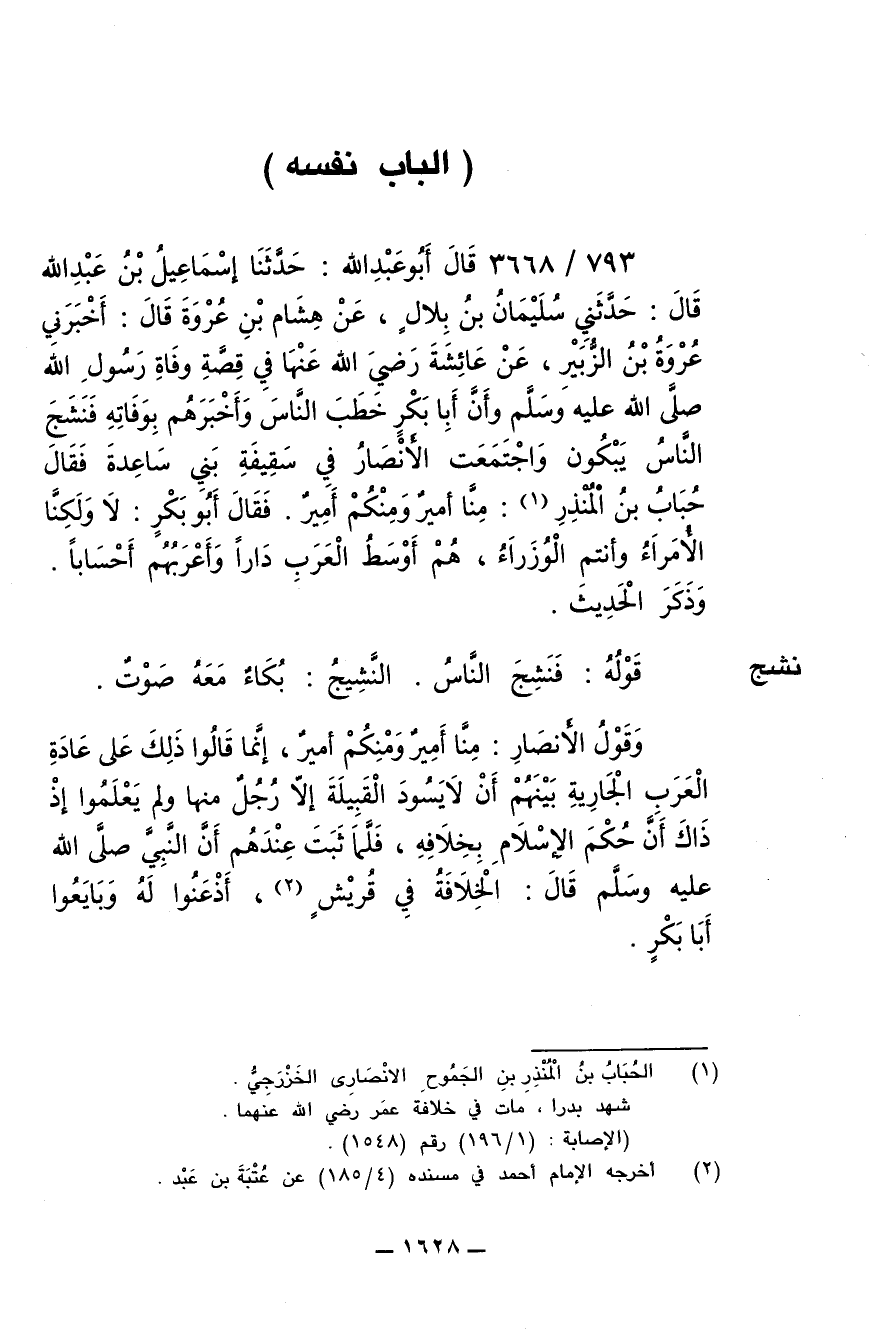 ( الباب نفسه )
٧٩٣ / ٣٦٦٨ قَالَ أَبُوعَبْدِالله : حَدَّثَنَا إسْمَاعِيلُ بْنُ عَبْدِالله
قَالَ : حَدَّثَنِي سُلَيْمَانُ بنُ بِلالٍ ، عَنْ هِشَام بْنِ عُرْوَةَ قَالَ : أَخْبَرَنِي
عُرْوَةُ بْنُ الزُّبَيْرِ ، عَنْ عَائِشَةَ رَضيَ الله عَنْهَا فِي قِصَّةِ وفَاةِ رَسُولِ الله
صلَّى الله عليه وسَلَّم وأَنَّ أَبا بَكْرٍ خَطَبَ النَّاسَ وَأَخْبَرَهُم بِوَفَاتِهِ فَنَشَجَ
النَّاسُ يَبْكُون وَاجْتَمَعَت الأَنْصَارُ فِي سَقِيفَةِ بَنِي سَاعِدةَ فَقَالَ
حُبَابُ بنُ الْمُنْذِرِ (١) : مِنَّا أميرٌ وَمِنْكُمْ أَمِيرٌ . فَقَالَ أَبُو بَكْرٍ : لاَ وَلَكِنَّا
الأُمَراَءُ وأنتم الْوُزَراَءُ ، هُمْ أَوْسَطُ الْعَرَبِ دَاراً وَأَعْرَبُهُم أَحْسَاباً .
وَذَكَرَ الْحَدِيثَ .
نشج قَوْلُهُ : فَنَشِجَ النَّاسُ . النَّشِيجُ : بُكَاءٌ مَعَهُ صَوْتٌ .
وَقَوْلُ الأَنصَارِ : مِنَّا أَمِيرٌ وَمْنِكُمْ أميرٌ ، إنَّما قَالُوا ذَلِكَ عَلى عَادَةِ
الْعَرَبِ الْجَارِيةِ بَيْنَهُمْ أَنْ لاَيَسُودَ الْقَبِيلَةَ إلاّ رُجُلٌ منها ولم يَعْلَمُوا إذْ
ذَاكَ أَنَّ حُكْمَ الإسْلَامِ بِخلَافِهِ ، فَلَّمَا ثَبَتَ عِنْدَهُم أَنَّ النَّبيَّ صلَّى الله
عليه وسَلَّم قَالَ : الْخِلَافَةُ فِي قُريْشٍ (٢) ، أَذْعَنُوا لَهُ وَبَايَعُوا
أَبَا بَكْرٍ .
(١) الحُبَابُ بنُ الْمُنْذِرِ بنِ الجَمُوحِ الانْصَارِى الخَزْرَجِيُّ .
شهد بدرا ، مات في خلافة عمَر رضي الله عنهما .
(الإصابة : (١/‏١٩٦) رقم (١٥٤٨) .
(٢) أخرجه الإمام أحمد في مسنده (٤/‏١٨٥) عن عُتْبَةَ بن عَبْد .
ــ ١٦٢٨ ــ